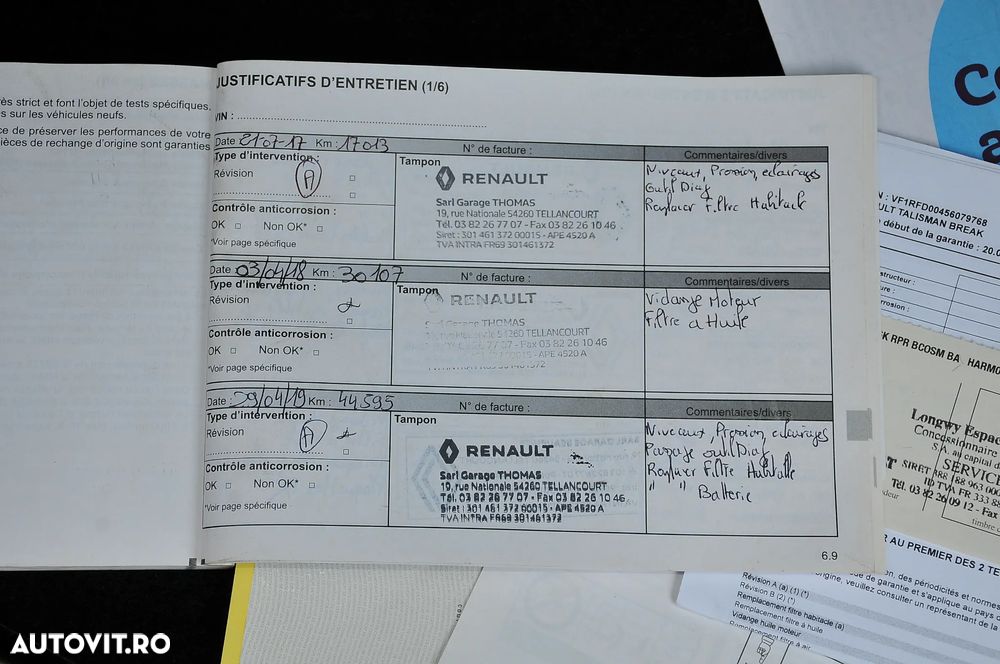 JUSTIFICATIFS D'ENTRETIEN (1/6)
VIN :
ès strict et font l'objet de tests spécifiques,
s sur les véhicules neufs.
ce de préserver les performances de votre
ièces de rechange d'origine sont garanties
Date : 21-07-17 Km : 17013 N° de facture : Commentaires/divers
Type d'intervention :
Révision A
Contrôle anticorrosion :
OK □ Non OK* □
*Voir page spécifique
Tampon
RENAULT
Sarl Garage THOMAS
19, rue Nationale 54260 TELLANCOURT
Tél. 03 82 26 77 07 - Fax 03 82 26 10 46
Siret : 301 461 372 00015 - APE 4520 A
TVA INTRA FR69 301461372
Niveaux, Pression, eclairages
Outil Diag
Remplacer Filtre Habitacle
Date : 03/04/18 Km : 30107 N° de facture : Commentaires/divers
Type d'intervention :
Révision
Contrôle anticorrosion :
OK □ Non OK* □
*Voir page spécifique
Tampon
RENAULT
Garage THOMAS
54260 TELLANCOURT
77 07 - Fax 03 82 26 10 46
00015 - APE 4520 A
301461372
Vidange Moteur
Filtre a Huile
Date : 29/04/19 Km : 44595 N° de facture : Commentaires/divers
Type d'intervention :
Révision A
Contrôle anticorrosion :
OK □ Non OK* □
*Voir page spécifique
Tampon
RENAULT
Sarl Garage THOMAS
19, rue Nationale 54260 TELLANCOURT
Tél. 03 82 26 77 07 - Fax 03 82 26 10 46
Siret : 301 461 372 00015 - APE 4520 A
TVA INTRA FR69 301461372
Niveaux, Pression, eclairages
outil Diag
Remplacer Filtre Habitacle
" " Batterie
6.9
N : VF1RFD00456079768
ULT TALISMAN BREAK
début de la garantie : 20.0
structeur :
ure :
rrosion :
K RPR BCOSM BA HARMO
Longwy Espac
Concessionnaire
S.A. au capital d
SERVICE
T SIRET
ID TVA FR 333 88
Tél. 03 82 26 09 12 - Fax
timbre
AU PREMIER DES 2 TE
on, des périodicités et normes
de garantie et s'applique au pays d
origine, veuillez consulter un représentant de la
Révision A (a) (1) (*)
Révision B (2) (*)
Remplacement filtre habitacle (a)
Remplacement filtre à huile
Vidange huile moteur
Remplacement filtre à air
AUTOVIT.RO